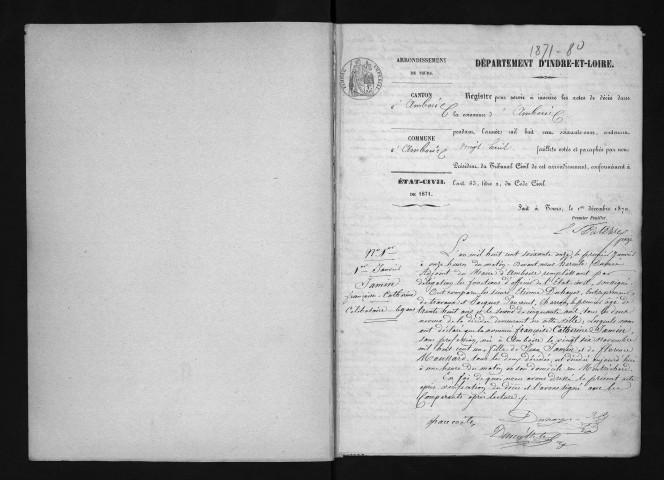 1871 - 80
ARRONDISSEMENT
DE TOURS.
CANTON
d'Amboise
COMMUNE
d'Amboise
ÉTAT-CIVIL
DE 1871.
DÉPARTEMENT D'INDRE-ET-LOIRE.
Registre pour servir à inscrire les actes de décès dans
la commune d'Amboise
pendant l'année mil huit cent soixante-onze, contenant
vingt huit feuillets cotés et paraphés par nous
Président du Tribunal Civil de cet arrondissement, conformément à
l'art. 43, titre 2, du Code Civil.
Fait à Tours, le 1er décembre 1870.
Premier Feuillet
No 1er
1er Janvier
Jamin
françoise Catherine
Célibataire
L'an mil huit cent soixante onze, le premier Janvier
à onze heures du matin, Devant nous
Adjoint du Maire d'Amboise remplissant par
délégation les fonctions d'officier de l'Etat civil, soussigné
Ont comparu les sieurs Etienne Duhayer, Entrepreneur
de travaux et Jacques, Charron, le premier âgé de
trente huit ans et le second de cinquante ans, tous les deux
de la décédée demeurant en cette ville, lesquels nous
ont déclaré que la nommée françoise Catherine Jamin,
sans profession, née à Amboise le vingt six Novembre
mil huit cent un, fille de Jean Jamin et de florence
Moussard, tous les deux décédés, est décédée
à une heure du matin, en son domicile
En foi de quoi nous avons dressé le présent acte
après vérification du décès et l'avons signé avec les
Comparants après lecture